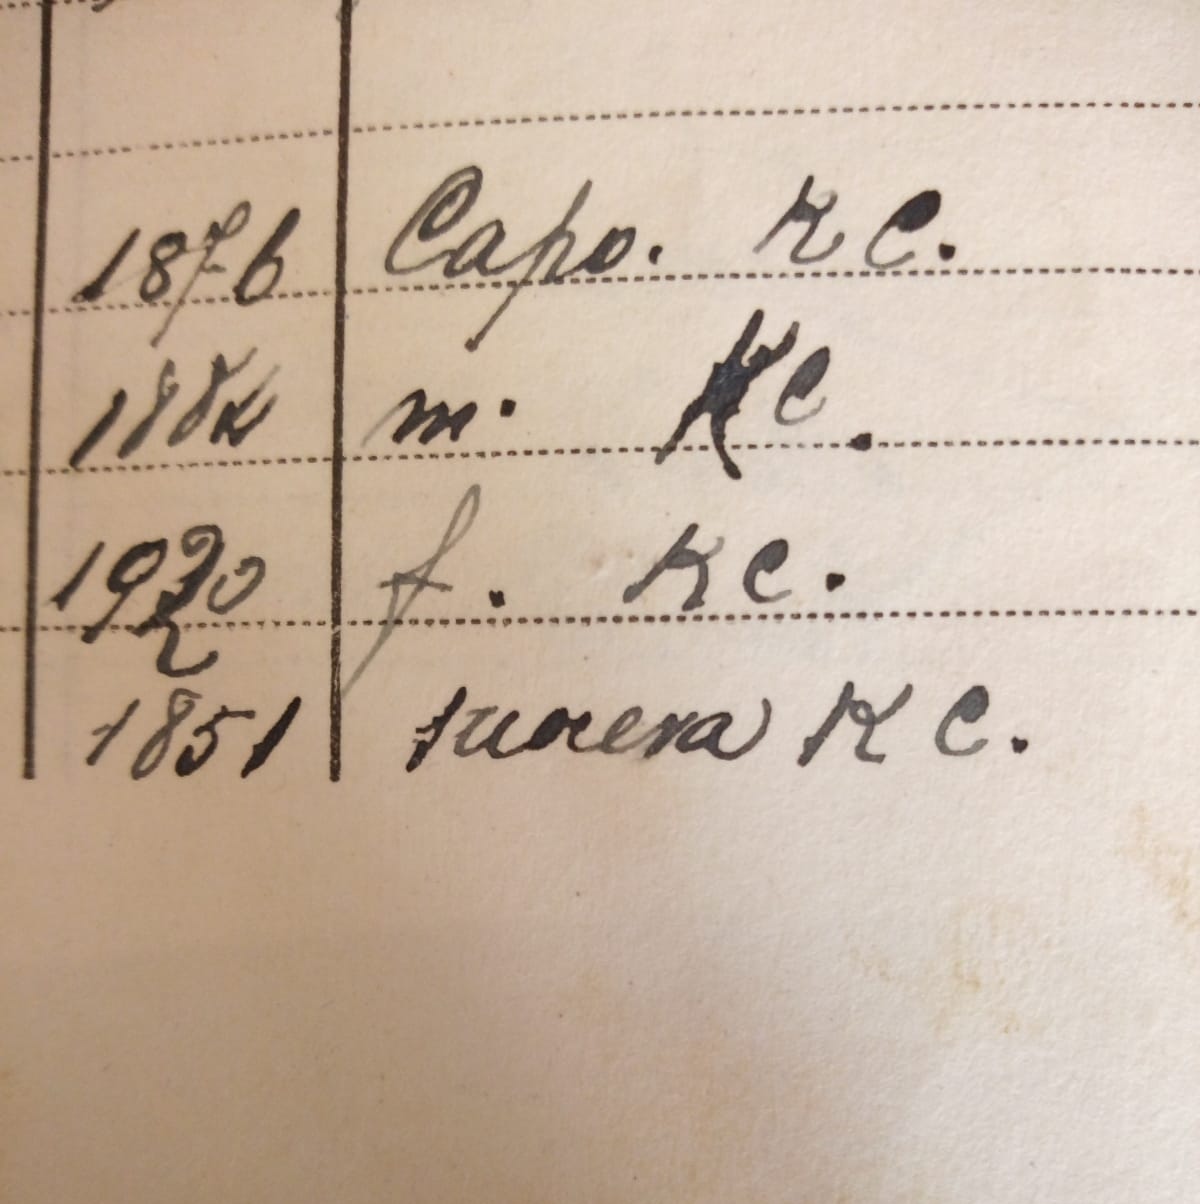 1876 Capo. K C.
188 m. K C.
1920 f. K C.
1851 suocera K C.